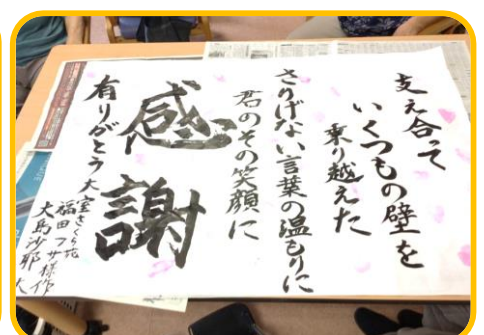 支え合って
いくつもの壁を
乗り越えた
さりげない言葉の温もりに
君のその笑顔に
感謝
有りがとう大室さくら苑
福田フサ様作
大馬沙耶